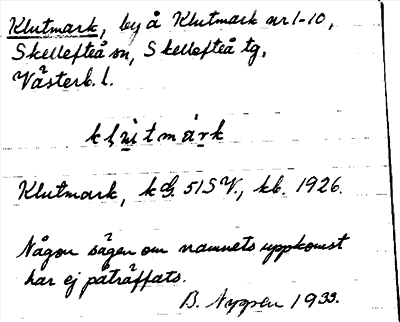 Klutmark, by å Klutmark nr 1-10,
Skellefteå sn, Skellefteå tg,
Västerb. l.
Klutmark, 51 S V., kb. 1926.
Någon sägen om namnets uppkomst
har ej påträffats.
B. Nygren 1933.